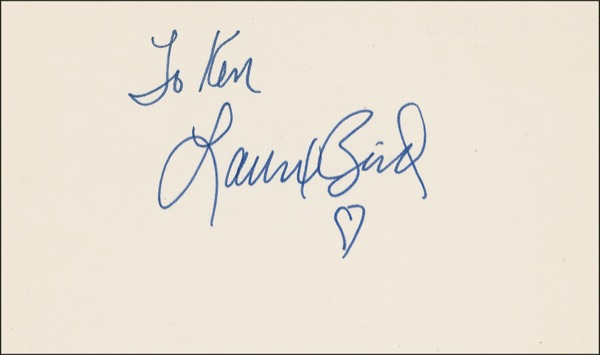 To Ken
Laurie Bird